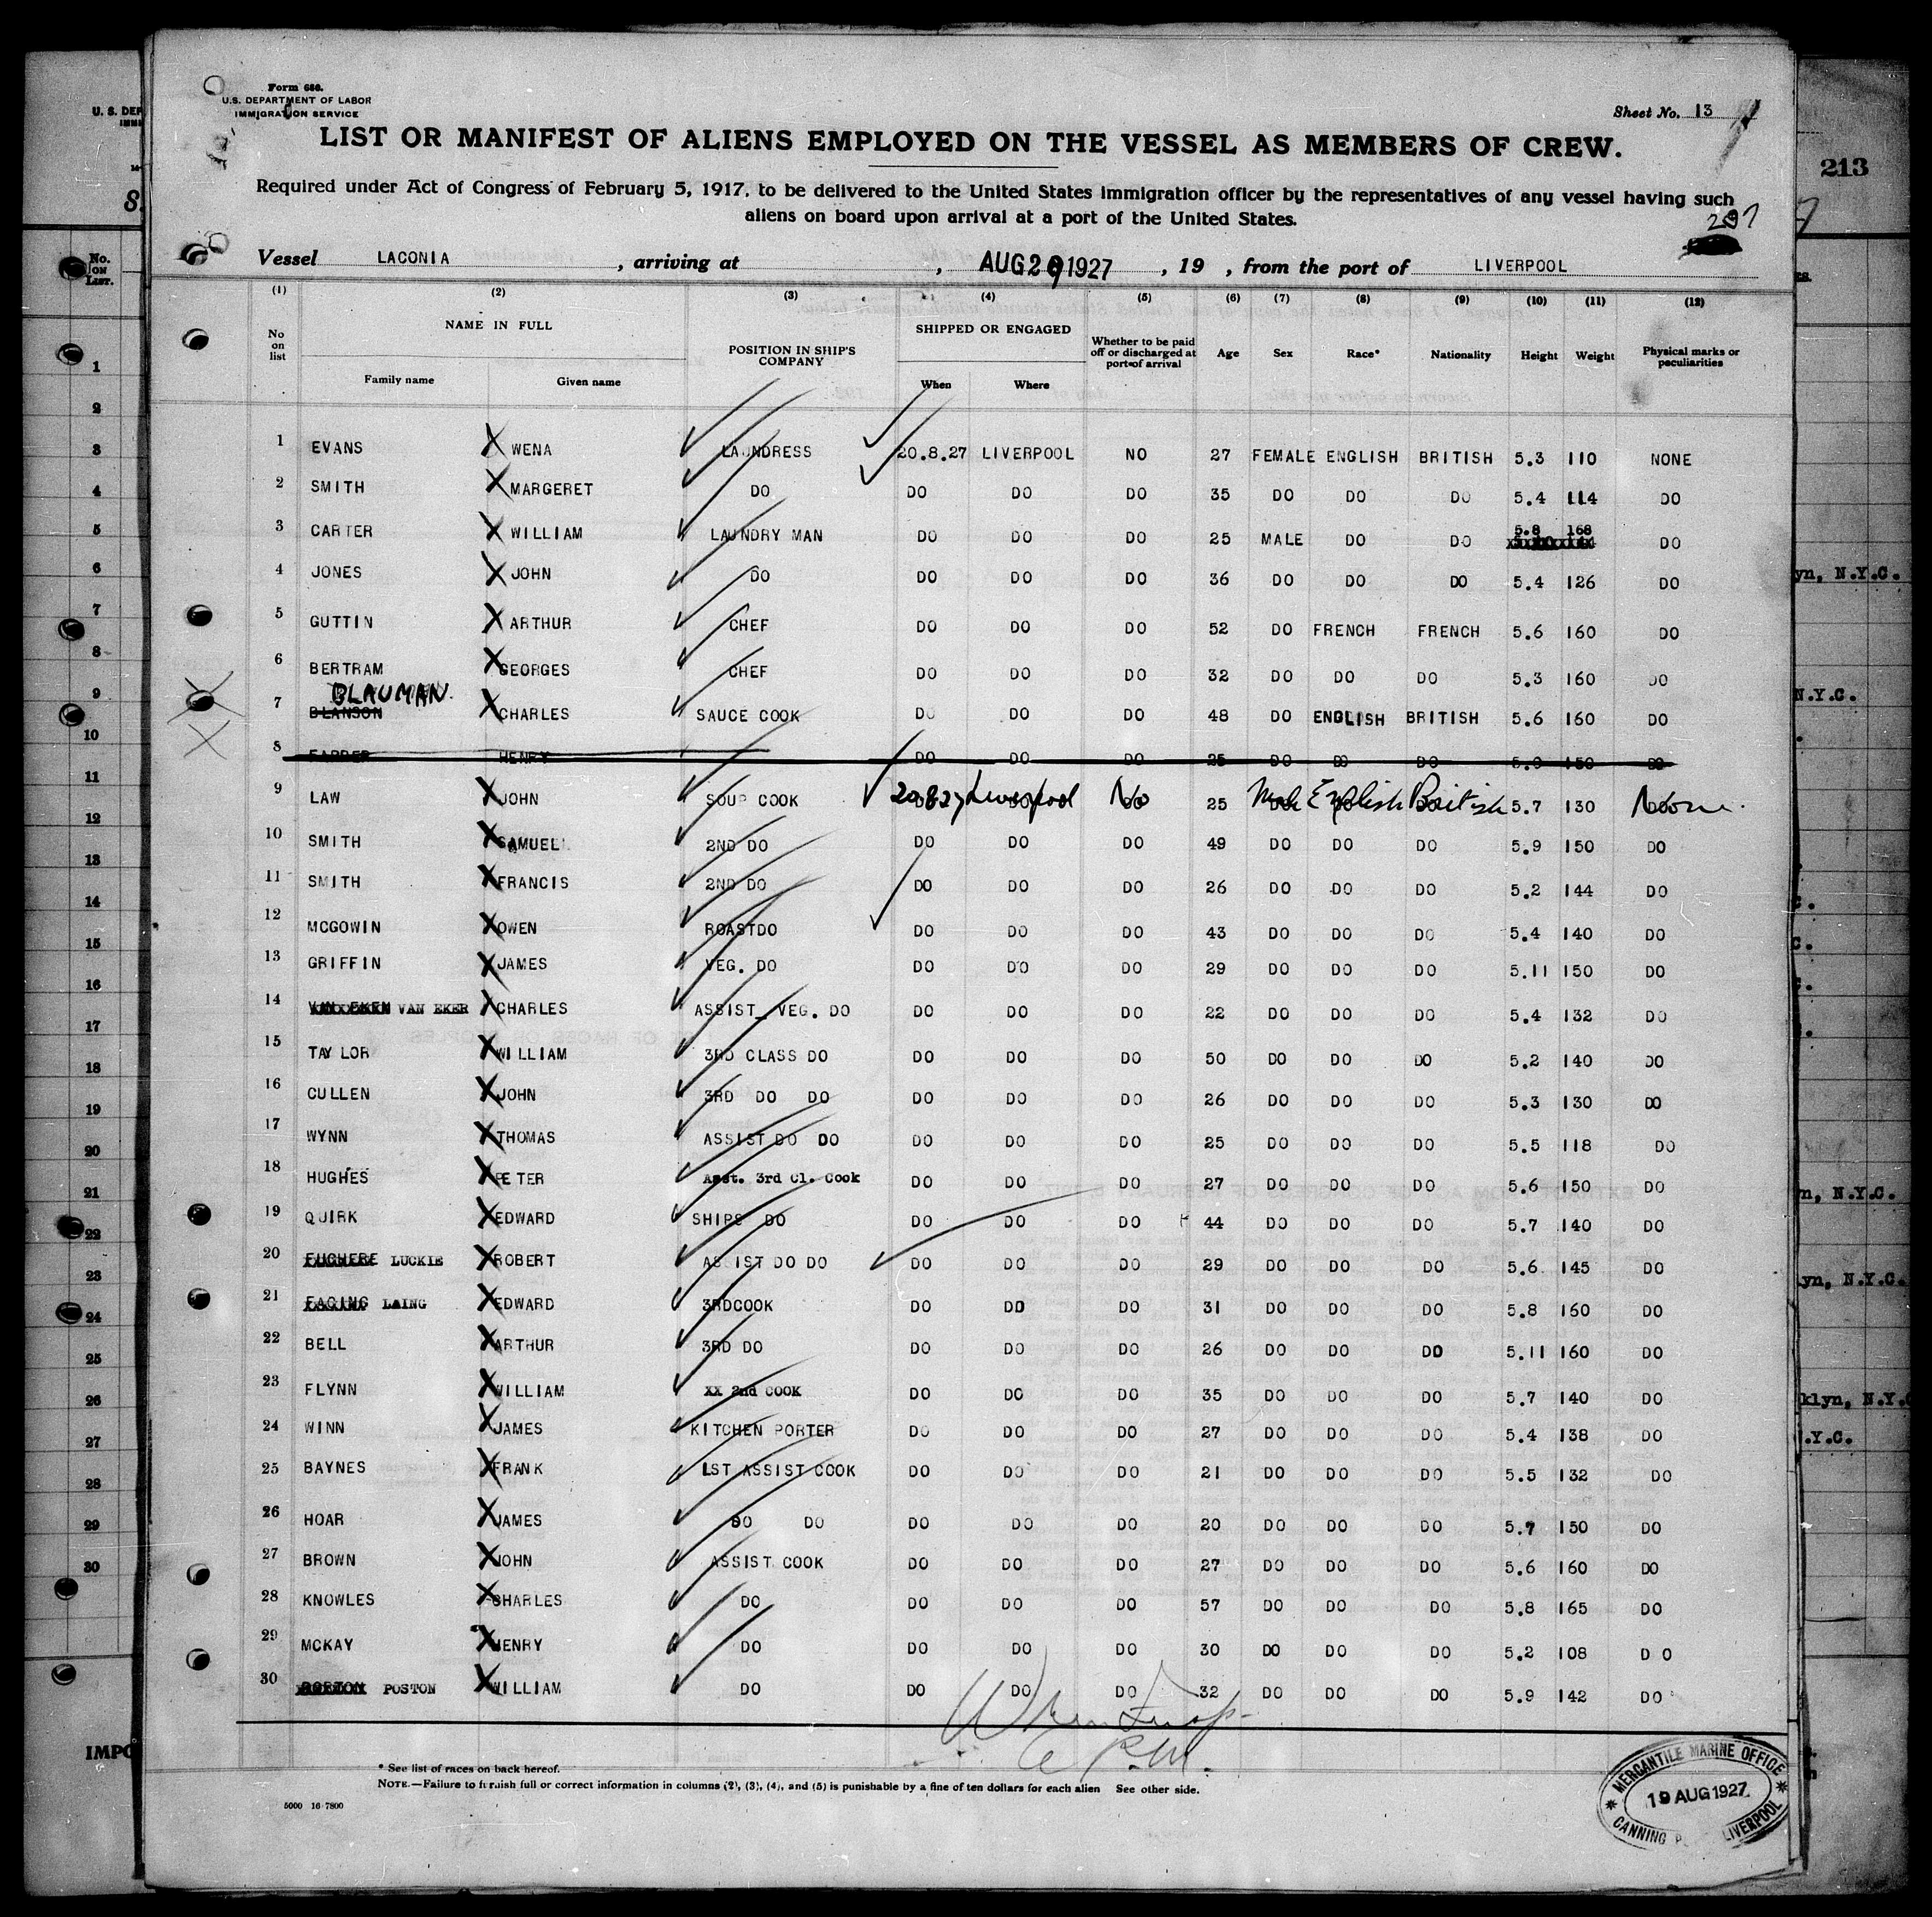 Form 686.
U.S. DEPARTMENT OF LABOR
IMMIGRATION SERVICE
Sheet No. 13
LIST OR MANIFEST OF ALIENS EMPLOYED ON THE VESSEL AS MEMBERS OF CREW.
Required under Act of Congress of February 5, 1917, to be delivered to the United States immigration officer by the representatives of any vessel having such
aliens on board upon arrival at a port of the United States.
213
Vessel LACONIA, arriving at , AUG 29 1927, 19 , from the port of LIVERPOOL
(1) (2) (3) (4) (5) (6) (7) (8) (9) (10) (11) (12)
No on list NAME IN FULL Family name Given name POSITION IN SHIP'S COMPANY SHIPPED OR ENGAGED When Where Whether to be paid off or discharged at port of arrival Age Sex Race* Nationality Height Weight Physical marks or peculiarities
1 EVANS WENA LAUNDRESS 20.8.27 LIVERPOOL NO 27 FEMALE ENGLISH BRITISH 5.3 110 NONE
2 SMITH MARGERET DO DO DO DO 35 DO DO DO 5.4 114 DO
3 CARTER WILLIAM LAUNDRY MAN DO DO DO 25 MALE DO DO 5.8 168 DO
4 JONES JOHN DO DO DO DO 36 DO DO DO 5.4 126 DO
5 GUTTIN ARTHUR CHEF DO DO DO 52 DO FRENCH FRENCH 5.6 160 DO
6 BERTRAM GEORGES CHEF DO DO DO 32 DO DO DO 5.3 160 DO
BLAUMAN
7 BLANSON CHARLES SAUCE COOK DO DO DO 48 DO ENGLISH BRITISH 5.6 160 DO
8 HENRY DO DO DO 25 DO DO DO 150 DO
9 LAW JOHN SOUP COOK 20 8 27 Liverpool No 25 Male English British 5.7 130 None.
10 SMITH SAMUEL 2ND DO DO DO DO 49 DO DO DO 5.9 150 DO
11 SMITH FRANCIS 2ND DO DO DO DO 26 DO DO DO 5.2 144 DO
12 MCGOWIN OWEN ROASTDO DO DO DO 43 DO DO DO 5.4 140 DO
13 GRIFFIN JAMES VEG. DO DO DO DO 29 DO DO DO 5.11 150 DO
14 VAN EKEN VAN EKER CHARLES ASSIST_ VEG. DO DO DO DO 22 DO DO DO 5.4 132 DO
15 TAYLOR WILLIAM 3RD CLASS DO DO DO DO 50 DO DO DO 5.2 140 DO
16 CULLEN JOHN 3RD DO DO DO DO DO 26 DO DO DO 5.3 130 DO
17 WYNN THOMAS ASSIST DO DO DO DO DO 25 DO DO DO 5.5 118 DO
18 HUGHES PETER Asst. 3rd Cl. Cook DO DO DO 27 DO DO DO 5.6 150 DO
19 QUIRK EDWARD SHIPS DO DO DO DO 44 DO DO DO 5.7 140 DO
20 LUCKIE ROBERT ASSIST DO DO DO DO DO 29 DO DO DO 5.6 145 DO
21 LAING EDWARD 3RDCOOK DO DO DO 31 DO DO DO 5.8 160 DO
22 BELL ARTHUR 3RD DO DO DO DO 26 DO DO DO 5.11 160 DO
23 FLYNN WILLIAM XX 2nd COOK DO DO DO 35 DO DO DO 5.7 140 DO
24 WINN JAMES KITCHEN PORTER DO DO DO 27 DO DO DO 5.4 138 DO
25 BAYNES FRANK 1ST ASSIST COOK DO DO DO 21 DO DO DO 5.5 132 DO
26 HOAR JAMES DO DO DO DO DO 20 DO DO DO 5.7 150 DO
27 BROWN JOHN ASSIST COOK DO DO DO 27 DO DO DO 5.6 160 DO
28 KNOWLES CHARLES DO DO DO DO 57 DO DO DO 5.8 165 DO
29 MCKAY HENRY DO DO DO DO 30 DO DO DO 5.2 108 DO
30 POSTON WILLIAM DO DO DO DO 32 DO DO DO 5.9 142 DO
* See list of races on back hereof.
NOTE.—Failure to furnish full or correct information in columns (2), (3), (4), and (5) is punishable by a fine of ten dollars for each alien See other side.
5000 16 7800
MERCANTILE MARINE OFFICE
19 AUG 1927
CANNING LIVERPOOL